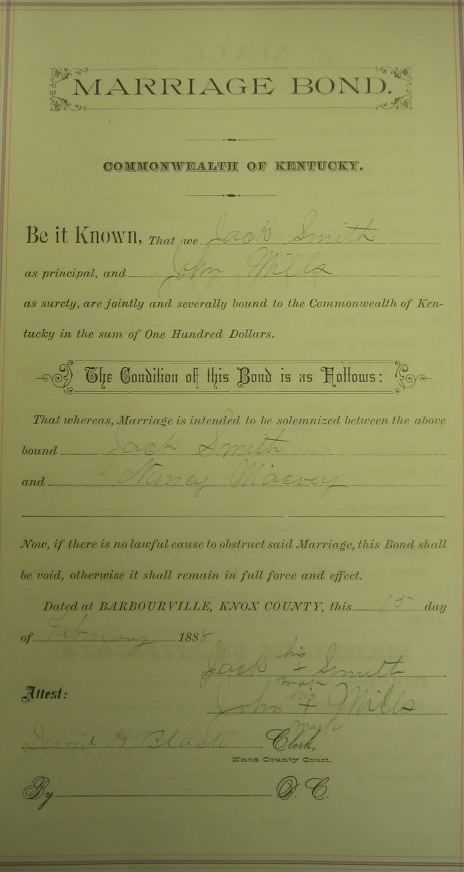 MARRIAGE BOND.
COMMONWEALTH OF KENTUCKY.
Be it Known, That we Jack Smith
as principal, and John Mills
as surety, are jointly and severally bound to the Commonwealth of Ken-
tucky in the sum of One Hundred Dollars.
The Condition of this Bond is as Follows:
That whereas, Marriage is intended to be solemnized between the above
bound Jack Smith
and Nancy Macvey
Now, if there is no lawful cause to obstruct said Marriage, this Bond shall
be void, otherwise it shall remain in full force and effect.
Dated at BARBOURVILLE, KNOX COUNTY, this 15 day
of February 1888
his
Jack + Smith
mark
Attest:
his
John + Mills
mark
David H Black Clerk,
Knox County Court.
By D. C.